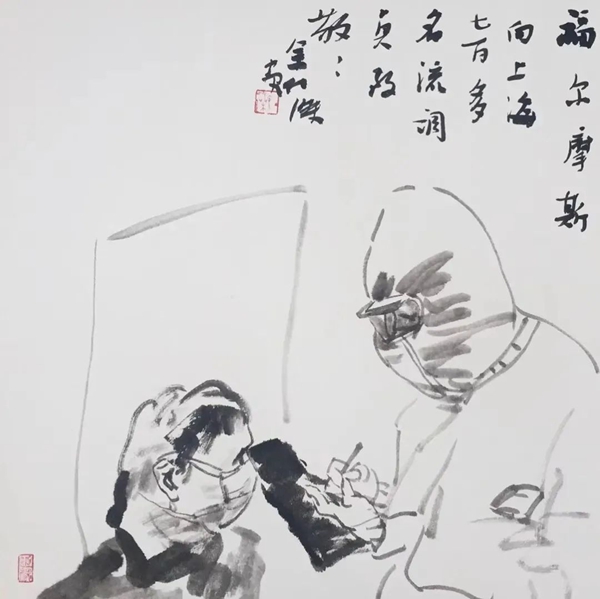 福尔摩斯
向上海
七百多
名流调
员致
敬!